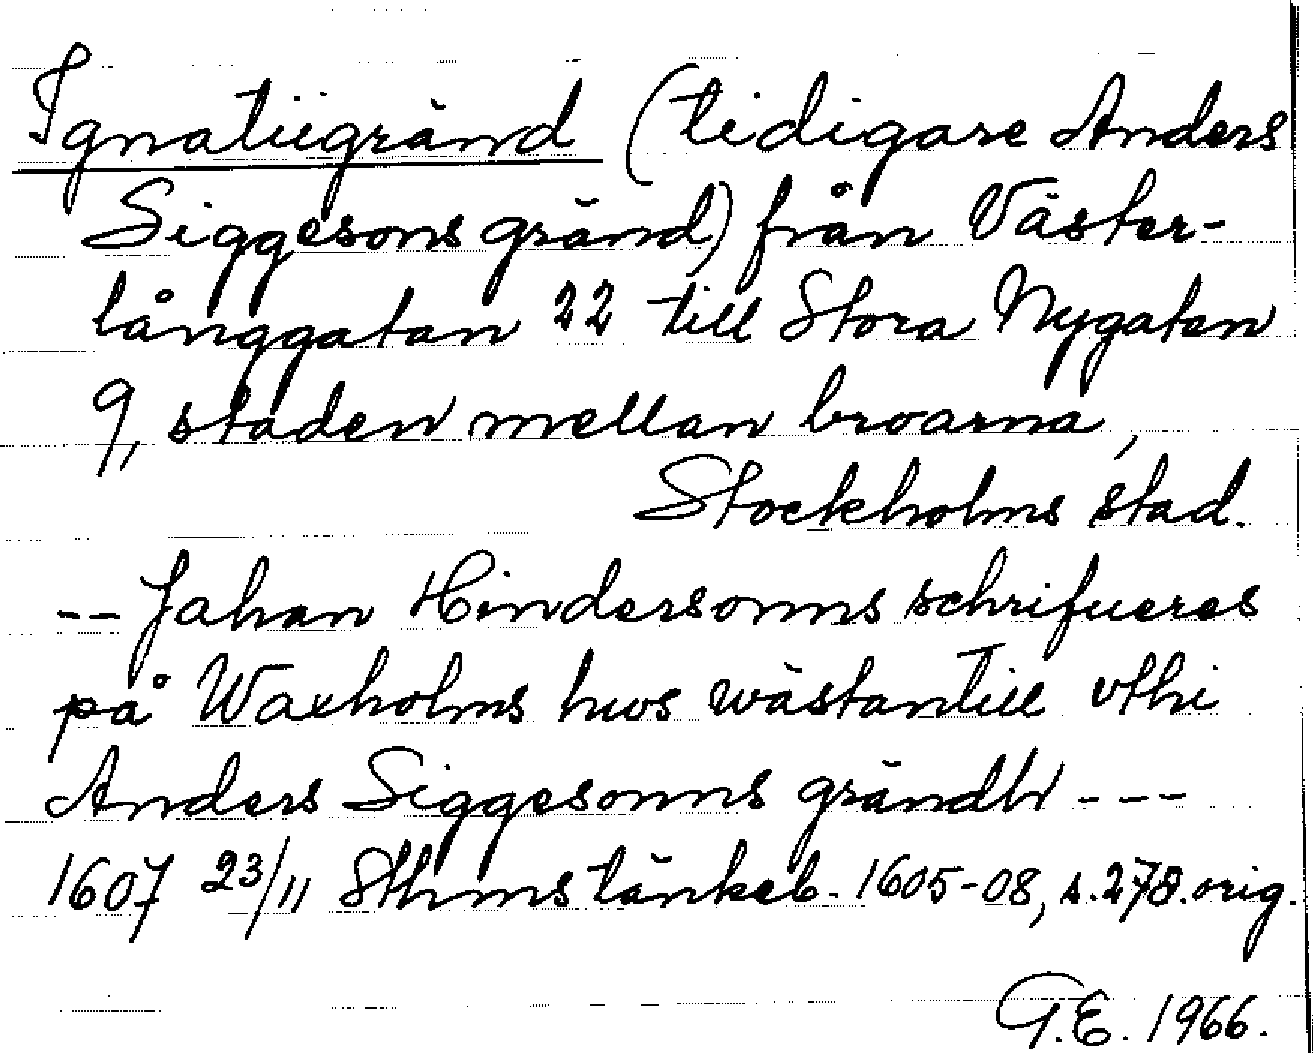 Ignatiigränd (tidigare Anders
Siggesons gränd) från Väster-
långgatan 22 till Stora Nygatan
9, staden mellan broarna,
Stockholms stad.
-- Jahan Hindersonns schrifueres
på Waxholms hws wästantill vthi
Anders Siggesonns grändh ---
1607 23/11 Sthms tänkeb. 1605-08, s. 278. orig.
G.E. 1966.